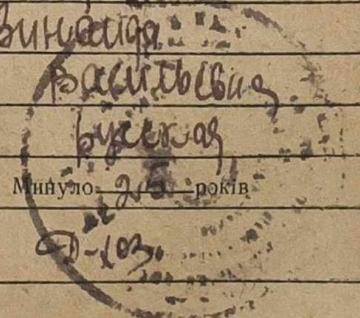 Зинаида
Васильевна
Буская
Минуло 25 років
Д-хоз.